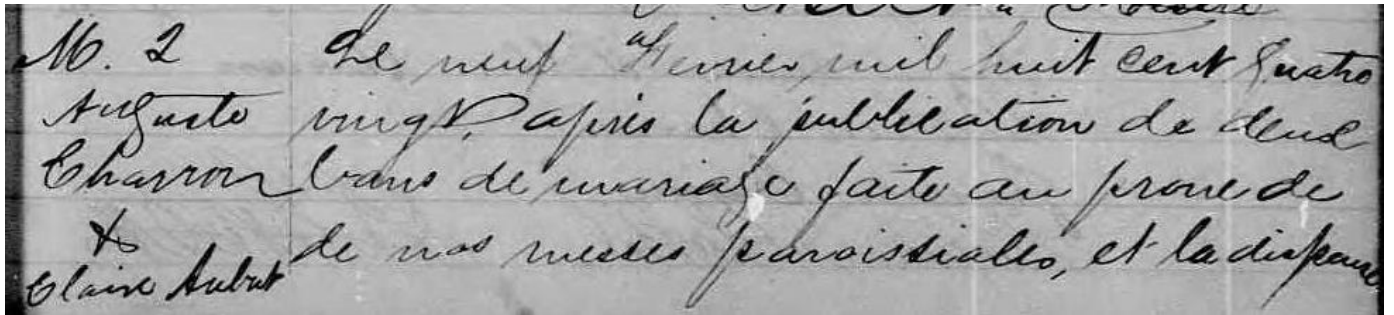 M. 2
Auguste
Charron
&
Claire Aubut
Le neuf Fevrier mil huit cent quatre
vingt, après la publication de deux
bans de mariage faite au prone de
de nos messes paroissiales, et la dispense